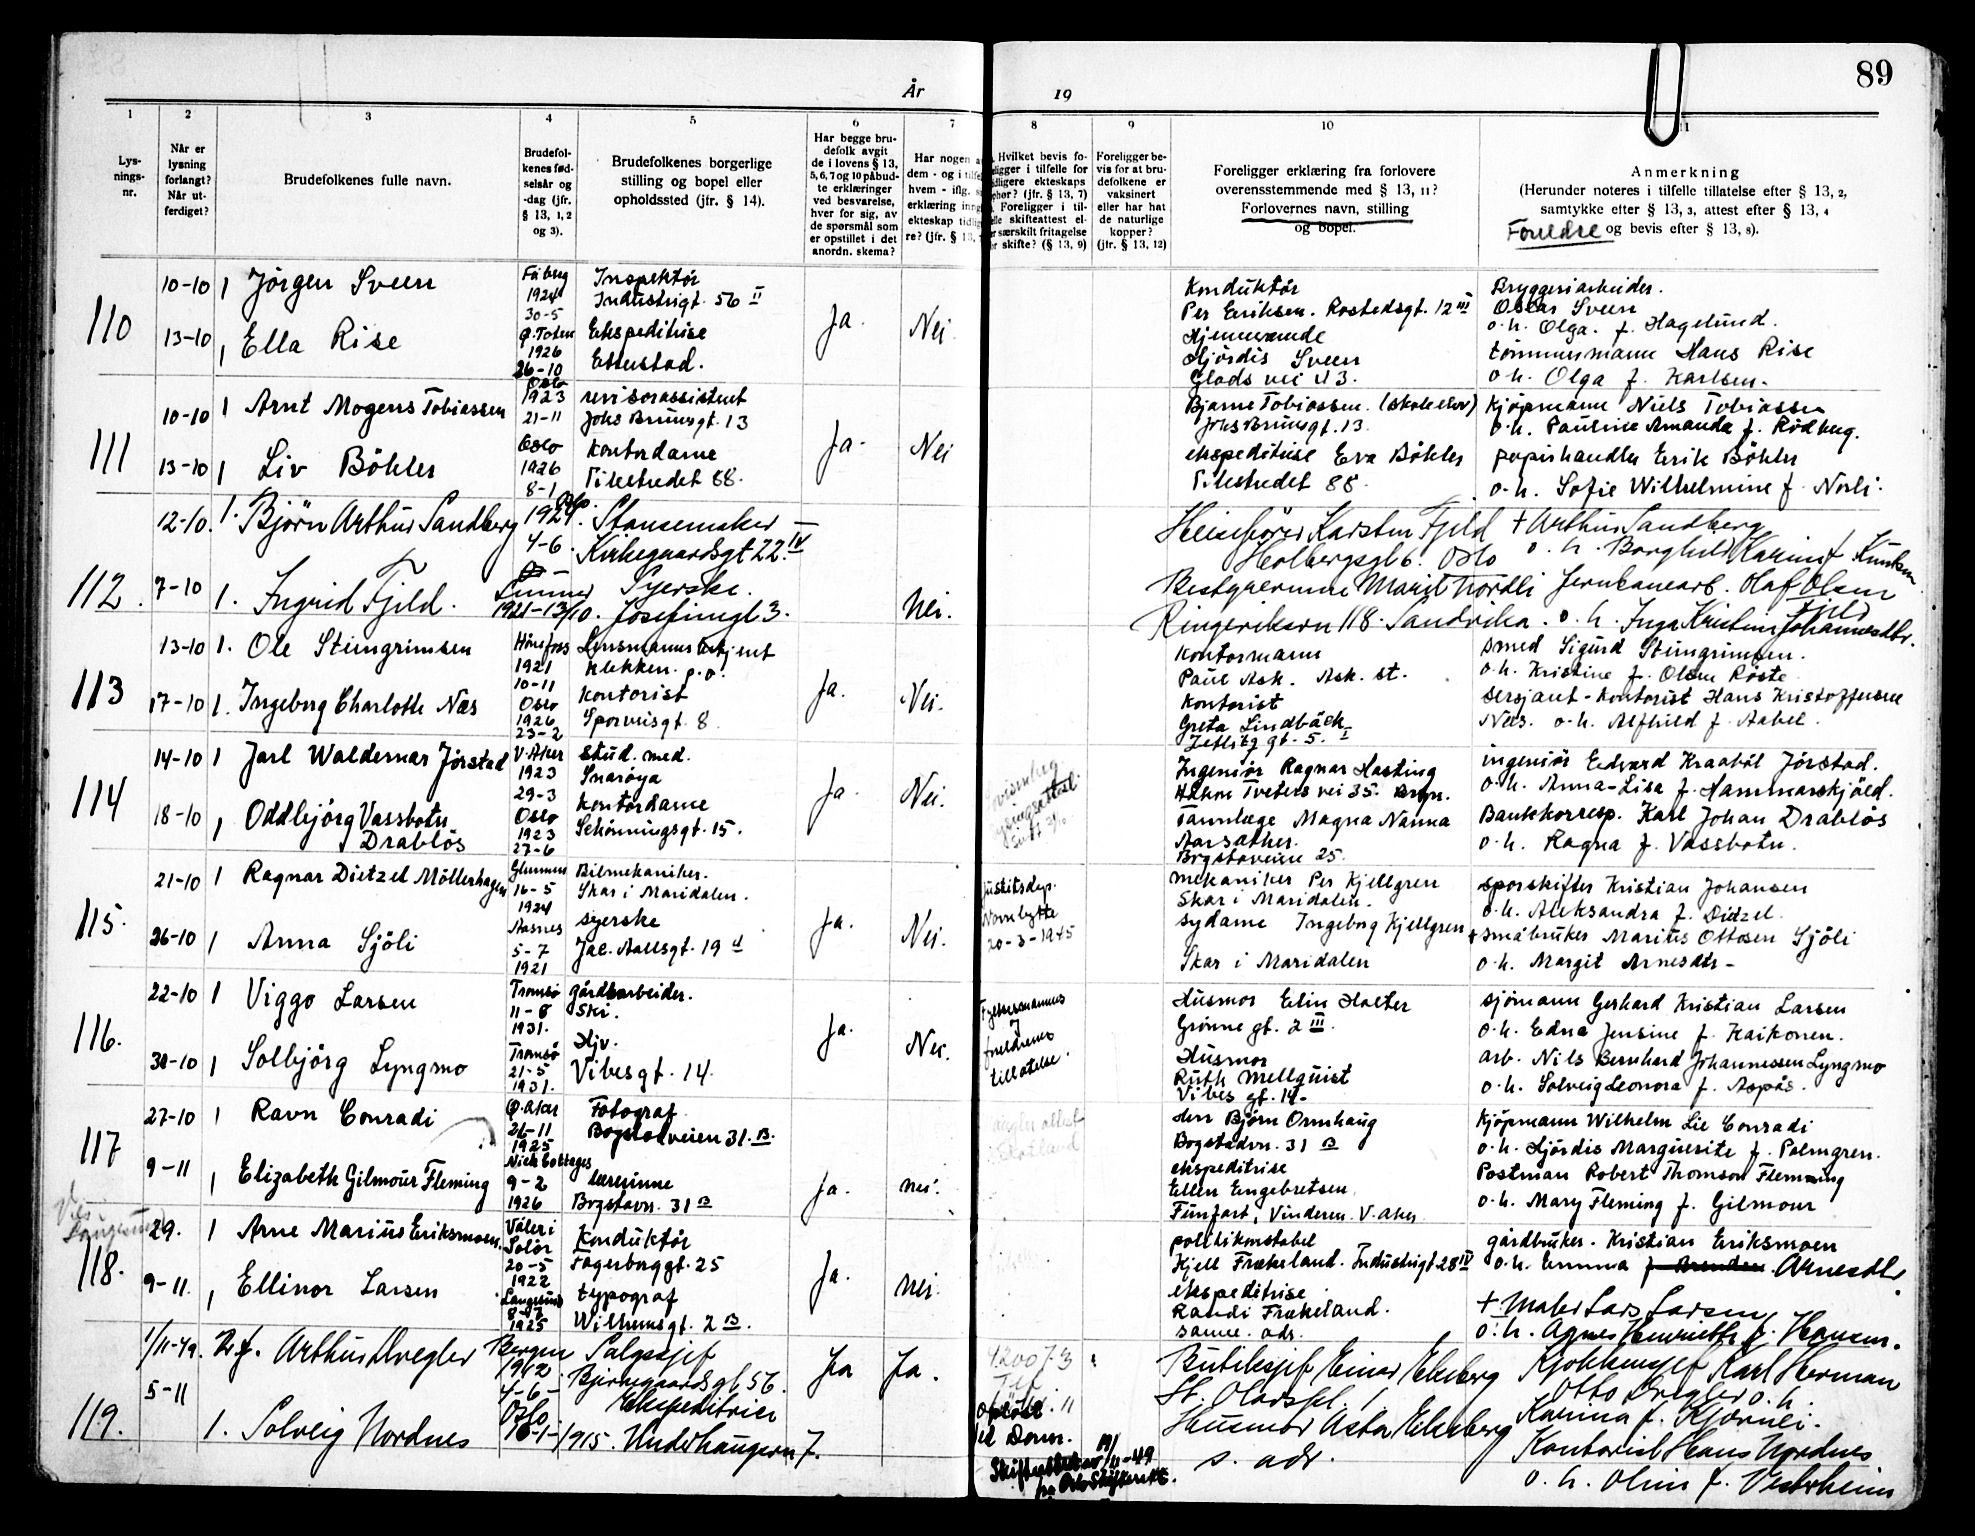 89
År 19
1 2 3 4 5 6 7 8 9 10 11
Lys-
nings-
nr.
Når er
lysning
forlangt?
Når ut-
ferdiget?
Brudefolkenes fulle navn.
Brudefol-
kenes fød-
selsår og
-dag (jfr.
§ 13, 1, 2
og 3).
Brudefolkenes borgerlige
stilling og bopel eller
opholdssted (jfr. § 14).
Har begge bru-
defolk avgit
de i lovens § 13,
5, 6, 7 og 10 påbud-
te erklæringer
ved besvarelse,
hver for sig, av
de spørsmål som
er opstillet i det
anordn. skema?
Har nogen
dem - og i
hvem - iflg.
erklæring
ekteskap
re? (jfr. § 13,
Hvilket bevis fo-
i tilfelle for
ekteskaps
(jfr. § 13, 7)
Foreligger i til-
skifteattest el-
særskilt fritagelse
skifte? (§ 13, 9)
Foreligger be-
vis for at bru-
defolkene er
vaksinert
eller har hat
de naturlige
kopper?
(jfr. § 13, 12)
Foreligger erklæring fra forlovere
overensstemmende med § 13, 11?
Forlovernes navn, stilling
og bopel.
Anmerkning
(Herunder noteres i tilfelle tillatelse efter § 13, 2,
samtykke efter § 13, 3, attest efter § 13, 4
Foreldre og bevis efter § 13, 8).
110
10-10 1 Jørgen Sveen
Fåberg
1924
30-5
Inspektør
Industrigt. 56 II
13-10 1 Ella Rise
Ø. Toten
1926
26-10
Ekspeditrise
Etterstad.
Ja. Nei.
Konduktør
Per Eriksen. Rostedsgt. 12 III
Hjemmeværende
Hjørdis Sveen
Glads vei 113.
Bryggeriarbeider.
Oskar Sveen
o.h. Olga. f. Hagelund.
tømmermann Hans Rise
o.h. Olga f. Karlsen.
111
10-10 1 Arnt Mogens Tobiassen
Oslo
1923
21-11
revisorassistent
Johs Brunsgt. 13
13-10 1 Liv Böhler
Oslo
1926
8-1
Kontordame
Pilestredet 88.
Ja. Nei
Bjarne Tobiassen. (skoleelev)
Johs Brunsgt. 13.
ekspeditrise Eva Böhler
Pilestredet 88.
Kjøpmann Niels Tobiassen
o.h. Pauline Amanda f. Rødberg.
papirhandler Erik Böhler
o.h. Sofie Wilhelmine f. Norli.
112.
12-10. 1. Bjørn Arthur Sandberg
Oslo
1924.
4-6.
Stansemaker
Kirkegaardsgt 22. IV
7-10 1. Ingrid Fjeld.
Lunner
1921-13/10.
Syerske.
Josefinegt 3.
Nei.
Karsten Fjeld
Holbergsgt 6. Oslo
Bestyrerinne Marit Nordli
Ringeriksvn 118. Sandvika.
+ Arthur Sandberg
o. h. Borghild Karine f. Knutsen
Jernbanearb. Olaf Olsen
Fjeld
o. h. Inga Kristine Johannesdtr.
113
13-10 1. Ole Steingrimsen
Hönefoss
1921
10-11
Lensmannsbetjent
Klekken. p.o.
17-10 1. Ingeborg Charlotte Næs
Oslo
1926
23-2
Kontorist
Sporveisgt. 8
Ja. Nei.
Kontormann
Paul Ask. Ask. st.
Kontorist
Greta Lindbäck
Zetlitz gt. 5. I
Smed Sigurd Steingrimsen.
o.h. Kristine f. Olsen Røste
Sersjant-Kontorist Hans Kristoffersen
Næs. o.h. Alfhild f. Aabel.
114
14-10 1 Jarl Waldemar Jørstad
V. Aker
1923
29-3
stud. med.
Snarøya
18-10 1 Oddbjørg Vassbotn
Drabløs
Oslo
1923
27-6
Kontordame
Schönningsgt. 15.
Ja. Nei.
Ingeniør Ragnar Hasting
Håkon Tveters vei 35. Bryn.
Tannlæge Magna Nanna
Aarsæther.
Bogstadveien 25.
ingeniør Edvard Kraabøl Jørstad.
o.h. Anna-Lisa f. Hammarskjöld.
Bankkorresp. Karl Johan Drabløs
o.h. Ragna f. Vassbotn.
115.
21-10 1 Ragnar Dietzel Möllerhagen
Glemmen
16-5
1924
Bilmekaniker.
Skar i Maridalen.
26-10 1 Anna Sjöli
Aasnes
5-7
1921
syerske
Jac. Aallsgt. 19 II
Ja. Nei.
Justitsdep.
Navnbytte
20-3-1945
mekaniker Per Kjellgren
Skar i Maridalen.
sydame Ingeborg Kjellgren
Skar i Maridalen
sporskifter Kristian Johansen
o.h. Aleksandra f. Ditzel.
+ småbruker Marius Ottosen Sjöli
o.h. Margit Arnesdtr.
116.
22-10 1 Viggo Larsen
Tromsø
11-8
1931.
gårdsarbeider.
Ski.
30-10 1 Solbjörg Lyngmo
Tromsö
21-5
1931.
Hjv.
Vibesgt. 14.
Ja. Nei.
Fylkesmannens
foreldrenes
tillatelse.
Husmor Elin Halter
Grönne gt. 2 III.
Husmor
Ruth Mellquist
Vibes gt. 14.
sjömann Gerhard Kristian Larsen
o.h. Edna Jensine f. Kaikonen.
arb. Nils Bernhard Johannessen Lyngmo
o.h. Solveig Leonora f. Aspås.
117
27-10 1 Ravn Conradi
Ø. Aker
26-11
1925
Fotograf
Bogstadveien 31. B.
9-11 1 Elizabeth Gilmour Fleming
9-2
1926
lærerinne
Bogstavn. 31 B
Ja. nei.
Skotland
Herr Bjørn Ormhaug
Bogstadvn. 31 B
ekspeditrise
Ellen Engebretsen
Vinderen. V. Aker
Kjøpmann Wilhelm Lie Conradi
o.h. Hjördis Marguerite f. Palmgren.
Postman Robert Thomson Fleming
o.h. Mary Fleming f. Gilmour
118.
29. 1 Arne Marius Eriksmoen.
Våler i
Solør
20-5
1922
Konduktør
Fagerborggt. 25
9-11. 1 Ellinor Larsen
Langesund
1925
typograf
Wilhelmsgt. 2 B.
Ja. nei.
politikonstabel
Kjell Frækeland. Industrigt. 28 IV
ekspeditrise
Randi Frækeland.
samme. adr.
gårdbruker. Kristian Eriksmoen
o.h. Emma Arnesdtr
+ Maler Lars Larsen
o. h. Agnes Henriette f. Hansen.
119.
1/11-49. Arthur Dvegler
Bergen
1912
4-6-
Salgssjef
Bjerregaards gt 56.
5-11 1. Solveig Nordnes
Oslo
16-1-1915.
Ekspeditrise
Underhaugsvn 7.
Ja Ja.
til Dom.
Skifteattest av 19/11-49
fra Oslo Skifterett.
Butiksjef Einar Ekeberg
St. Olavspl. 1.
Husmor Asta Ekeberg
s. adr.
Kjøkkensjef Karl Herman
Otto Dvegler o. h.
Karina f. Kjærnei.
Kontorist Hans Nordnes
o. h. Oline f. Vestrheim